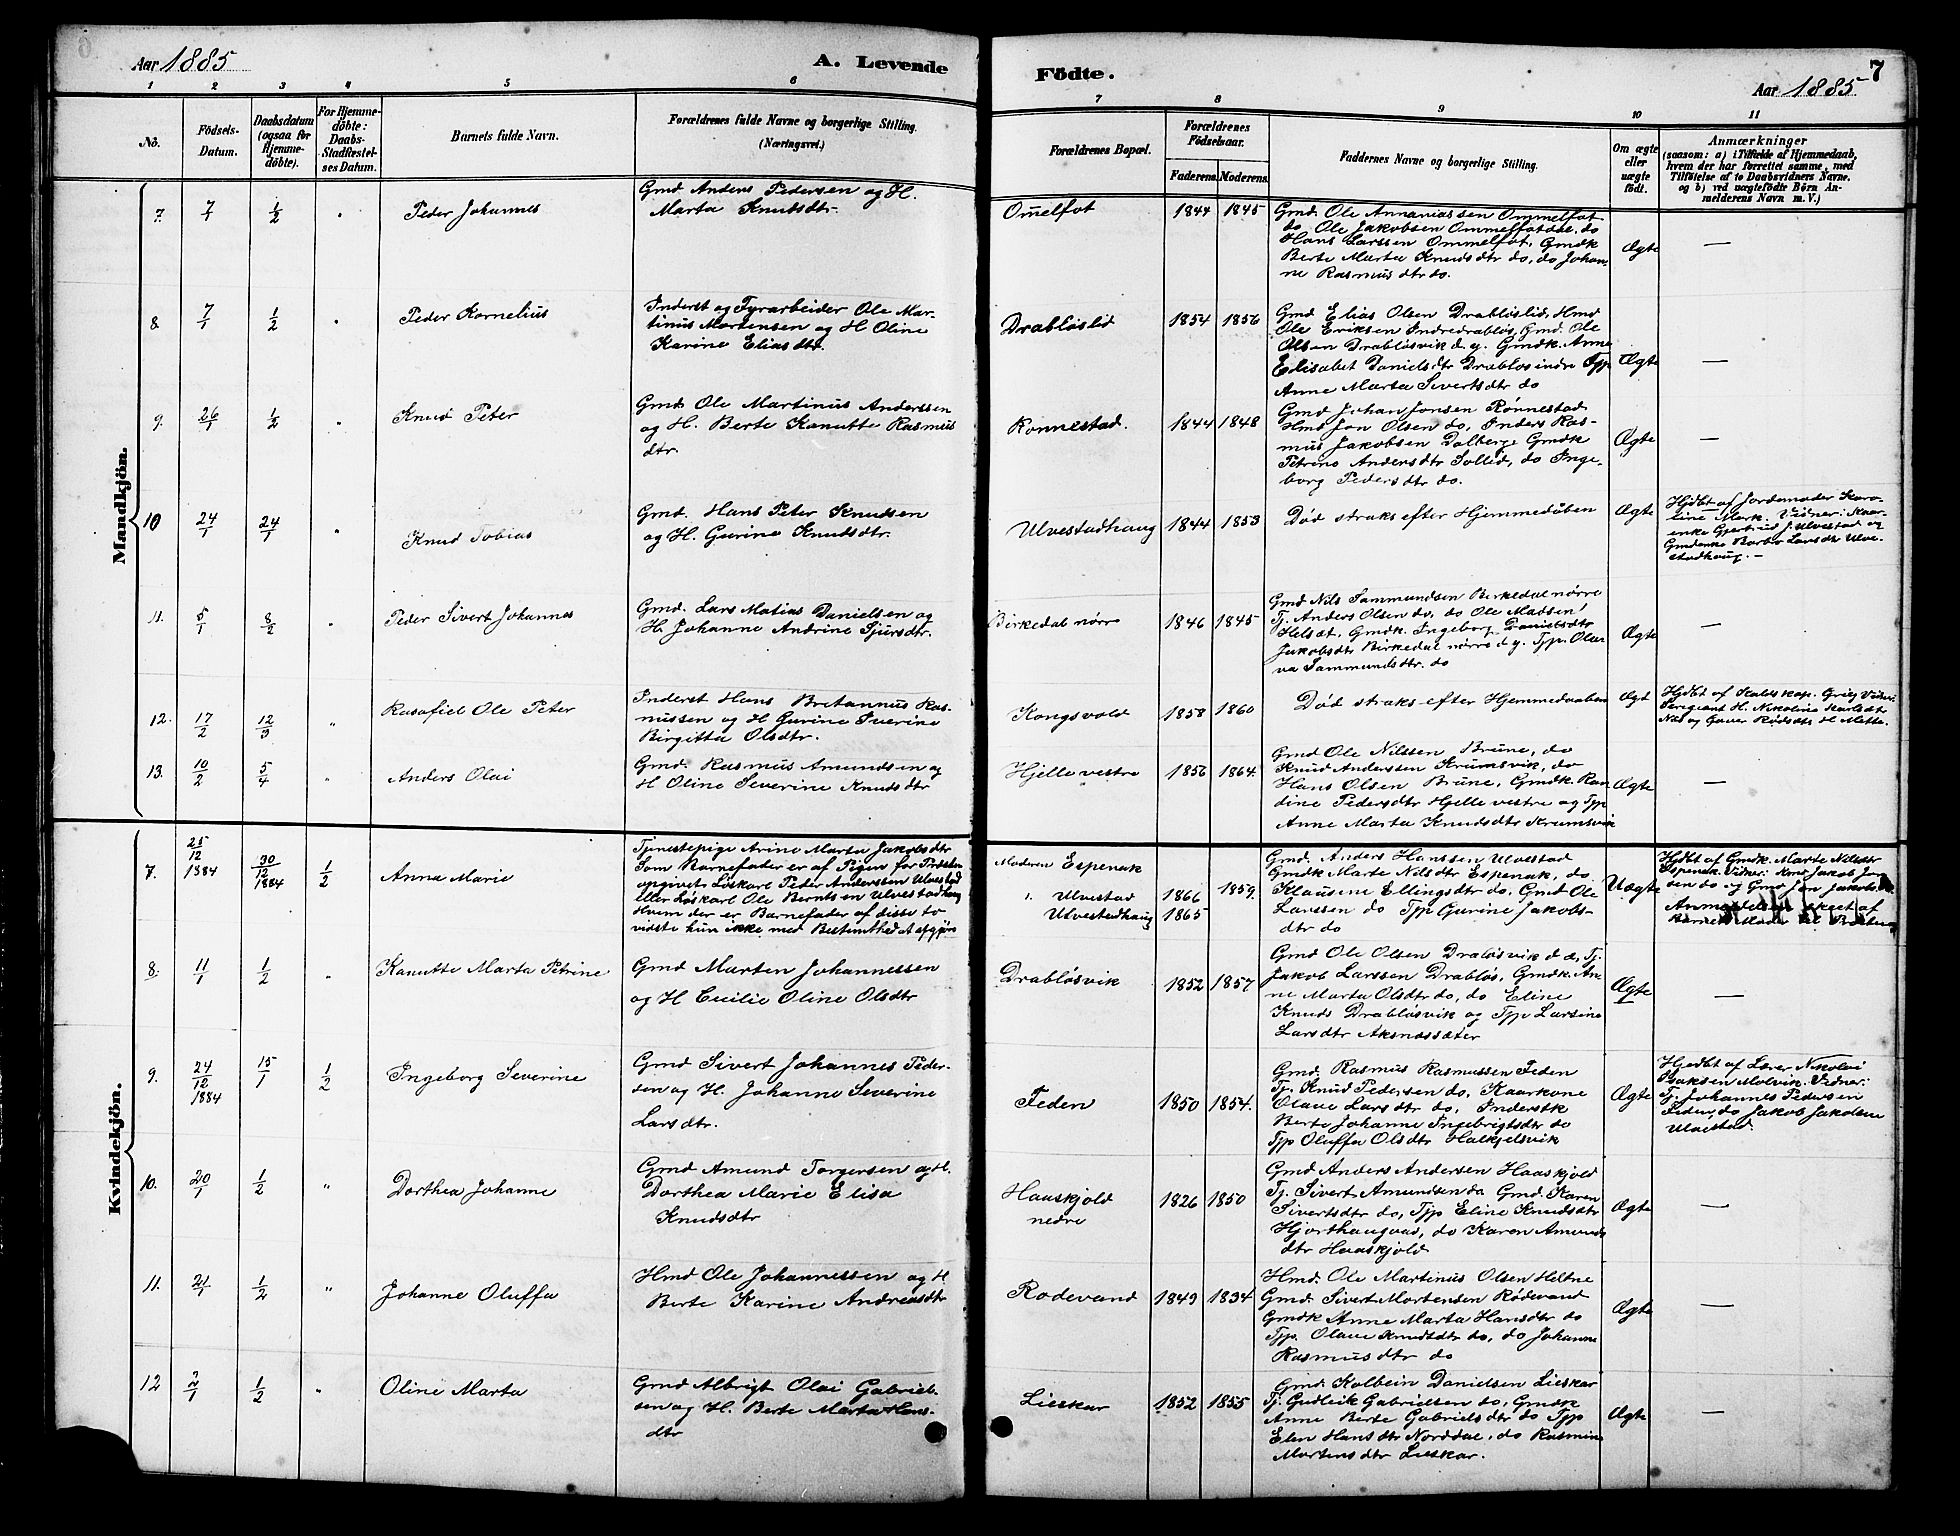 6
Aar 1885
A. Levende
Födte.
7
Aar 1885
1 2 3 4 5 6
7 8 9 10 11
No.
Födsels-
Datum.
Daabsdatum
(ogsaa for
Hjemme-
döbte).
For Hjemme-
döbte:
Daabs-
Stadfæstel-
ses Datum.
Barnets fulde Navn.
Forældrenes fulde Navne og borgerlige Stilling.
(Næringsvei.)
Forældrenes Bopæl.
Forældrenes
Födselsaar.
Faderens. Moderens.
Faddernes Navne og borgerlige Stilling.
Om ægte
eller
uægte
födt.
Anmærkninger
(saasom: a) i Tilfælde af Hjemmedaab,
hvem der har forrettet samme, med
Tilföielse af to Daabsvidners Navne.
og b) ved uægtefödte Börn An-
melderens Navn m. V.)
Mandkjön.
7. 7/1 1/2 " Peder Johannes
Gmd Anders Pedersen og H.
Marta Knutsdtr.
Omelfot 1844 1845
Gmd. Ole Annaniassen Ommelfot
do Ole Jakobsen Ommelfotdal, do
Hans Larssen Ommelfot, Gmdk
Berte Marta Knudsdtr do, do Johan-
ne Rasmusdtr do.
Ægte —
8. 7/1 1/2 " Peder Kornelius
Inderst og Fyrarbeider Ole Mar-
tinus Mortensen og H Oline
Karine Eliasdtr.
Drabløslid 1854 1856
Gmd Elias Olsen Drabløslid, Hmd
Ole Eriksen Indredrabløs, Gmd. Ole
Olsen Drabløsvik d. y. Gmdk. Anne
Elisabet Danielsdtr Drabløs indre Tjp
Anne Marta Sivertsdtr do
Ægte —
9. 26/1 1/2 " Knud Peter
Gmd Ole Martinus Anderssen
og H. Berte Kanutte Rasmus
dtr.
Ronnestad. 1844 1848
Gmd Johan Jonsen Rønnestad
Hmd Jon Olsen do, Inders Ras-
mus Jakobsen Dalberg, Gmdk
Petrine Andersdtr Sollid, do Inge-
borg Pedersdtr do.
Ægte —
10 24/1 24/1 " Knud Tobias
Gmd. Hans Peter Knudsen
og H. Gurine Knudsdtr.
Ulvestadhaug 1844 1853
Død straks efter Hjemmedøben
Ægte
Hjdbt af Jordemoder Karo-
line Mork. Vidner: Kaar-
enke Gjertrud J. Ulvestad og
Gmdenke Barbro Larsdtr Ulve-
stadhaug. —
11. 5/1 8/2 " Peder Sivert Johannes
Gmd. Lars Matias Danielsen og
H. Johanne Andrine Sjursdtr.
Birkedal nørr 1846 1845
Gmd Nils Sammundsen Birkedal nørre
Tj. Anders Olsen do, do Ole Madsen
Helset, Gmdk. Ingeborg Danielsdtr
Jakobsdtr Birkedal nørre d y. Tjp. Olav
va Sammundsdtr. do
Ægte —
12. 17/2 12/3 " Rasafiel Ole Peter
Inderst Hans Bretannus Ras-
mussen og H Gurine Iverine
Birgitta Olsdtr.
Kongsvold 1858 1860
Død straks efter Hjemmedaaben
Ægt
Hjdbt af Kap. Grieg Vidner:
Sergeant H. Nikoline Karlsdtr
H Mette.
13. 10/2 5/4 " Anders Olai
Gmd. Rasmus Amundsen og
H Oline Severine Knudsdtr
Hjelle vestre 1856 1864.
Gmd Ole Nilssen Brune, do
Knud Anderssen Krumsvik, do
Hans Olsen Brune, Gmdk. Ran
dine Pedersdtr Hjelle vestre og Tjp
Anne Marta Knudsdtr Krumsvik
Ægte —
Kvindekjön.
7. 25/12 1884 30/12 1884 1/2 Anna Marie
Tjenestepige Arine Marta Jakobsdtr
Som Barnefader er af Pigen for Presten
opgivet: Løskarl Peder Anderssen Ulvestad
eller Løskarl Ole Berntsen Ulvestadhaug
Hvem der er Barnefader af disse to
vidste hun ikke med Bestemthed at afgjøre
Moderen Espenak
" Ulvestad 1866 1859.
Ulvestadhaug 1865
Gmd. Anders Hanssen Ulvestad
Gmdk Marte Nilsdtr Espenak, do
Klausine Ellingsdtr do, Gmd Ole
Larssen do Tjp Gurine Jakobs-
dtr do
Uægte
Hjdbt af Gmdk. Marte Nilsdtr
Espenak. Vidner: Jakob Jon
sen do og Gmd Jon Jakobs
Anmeldelsen skeet af
Barnets Moder til Presten
8. 11/1 1/2 " Kanutte Marta Petrine
Gmd Marten Johannessen
og H Cecilie Oline Olsdtr
Drabløsvik 1852 1857
Gmd Ole Olsen Drabløsvik d æ, Tj.
Jakob Larssen Drabløs, Gmdk. An-
ne Marta Olsdtr do, do Eline
Knuds Drabløsvik og Tjp Larsine
Larsdtr Aksnessæter
Ægte —
9. 24/12 1884 15/1 1/2 Ingeborg Severine
Gmd Sivert Johannes Peder-
sen og H. Johanne Severine
Larsdtr.
Feden 1850 1854.
Gmd. Rasmus Rasmussen Feden
Tj. Knud Pedersen do, Kaarkone
Olave Larsdtr do, Inderstk
Berte Johanne Ingebrigtsdtr do
Tjp Oluffa Olsdtr Halkjelsvik
Ægte
Hjdbt af Lærer Nikolai
Isaksen Molvik. Vidner:
Tj. Johannes Pedersen
Feden, do Jakob Jakobsen
Ulvestad
10. 20/1 1/2 " Dorthea Johanne
Gmd Amund Torgersen og H.
Dorthea Marie Elisa
Knudsdtr
Haaskjold
nedre 1826 1850
Gmd Anders Andersen Haaskjold
Tj. Sivert Amundsen do Gmd. Karen
Sivertsdtr do, Tjp Eline Knudsdtr
Hjorthaugvad, do Karen Amunds
dtr Haaskjold
Ægte —
11. 21/1 1/2 " Johanne Oluffa
Hmd Ole Johannessen og H.
Berte Karine Andreasdtr
Rodevand 1849 1834
Hmd. Ole Martinus Olsen Heltne
Gmd. Sivert Mortensen Rødevand
Gmdk Anne Marta Hansdtr do
Tjp. Olave Knudsdtr do, do Johanne
Rasmusdtr do
Ægte —
12 2/1 1/2 " Oline Marta
Gmd Albrigt Olai Gabriel-
sen og H. Berte Marta Hans-
dtr
Lieskar 1852 1855
Gmd Kolbein Danielsen Lieskar
Tj. Gudleik Gabrielsen do, Gmdk
Anne Berte Gabrielsdtr do Tjp
Elen Hansdtr Norddal, do Rasmine
Martensdtr Lieskar.
Ægte —